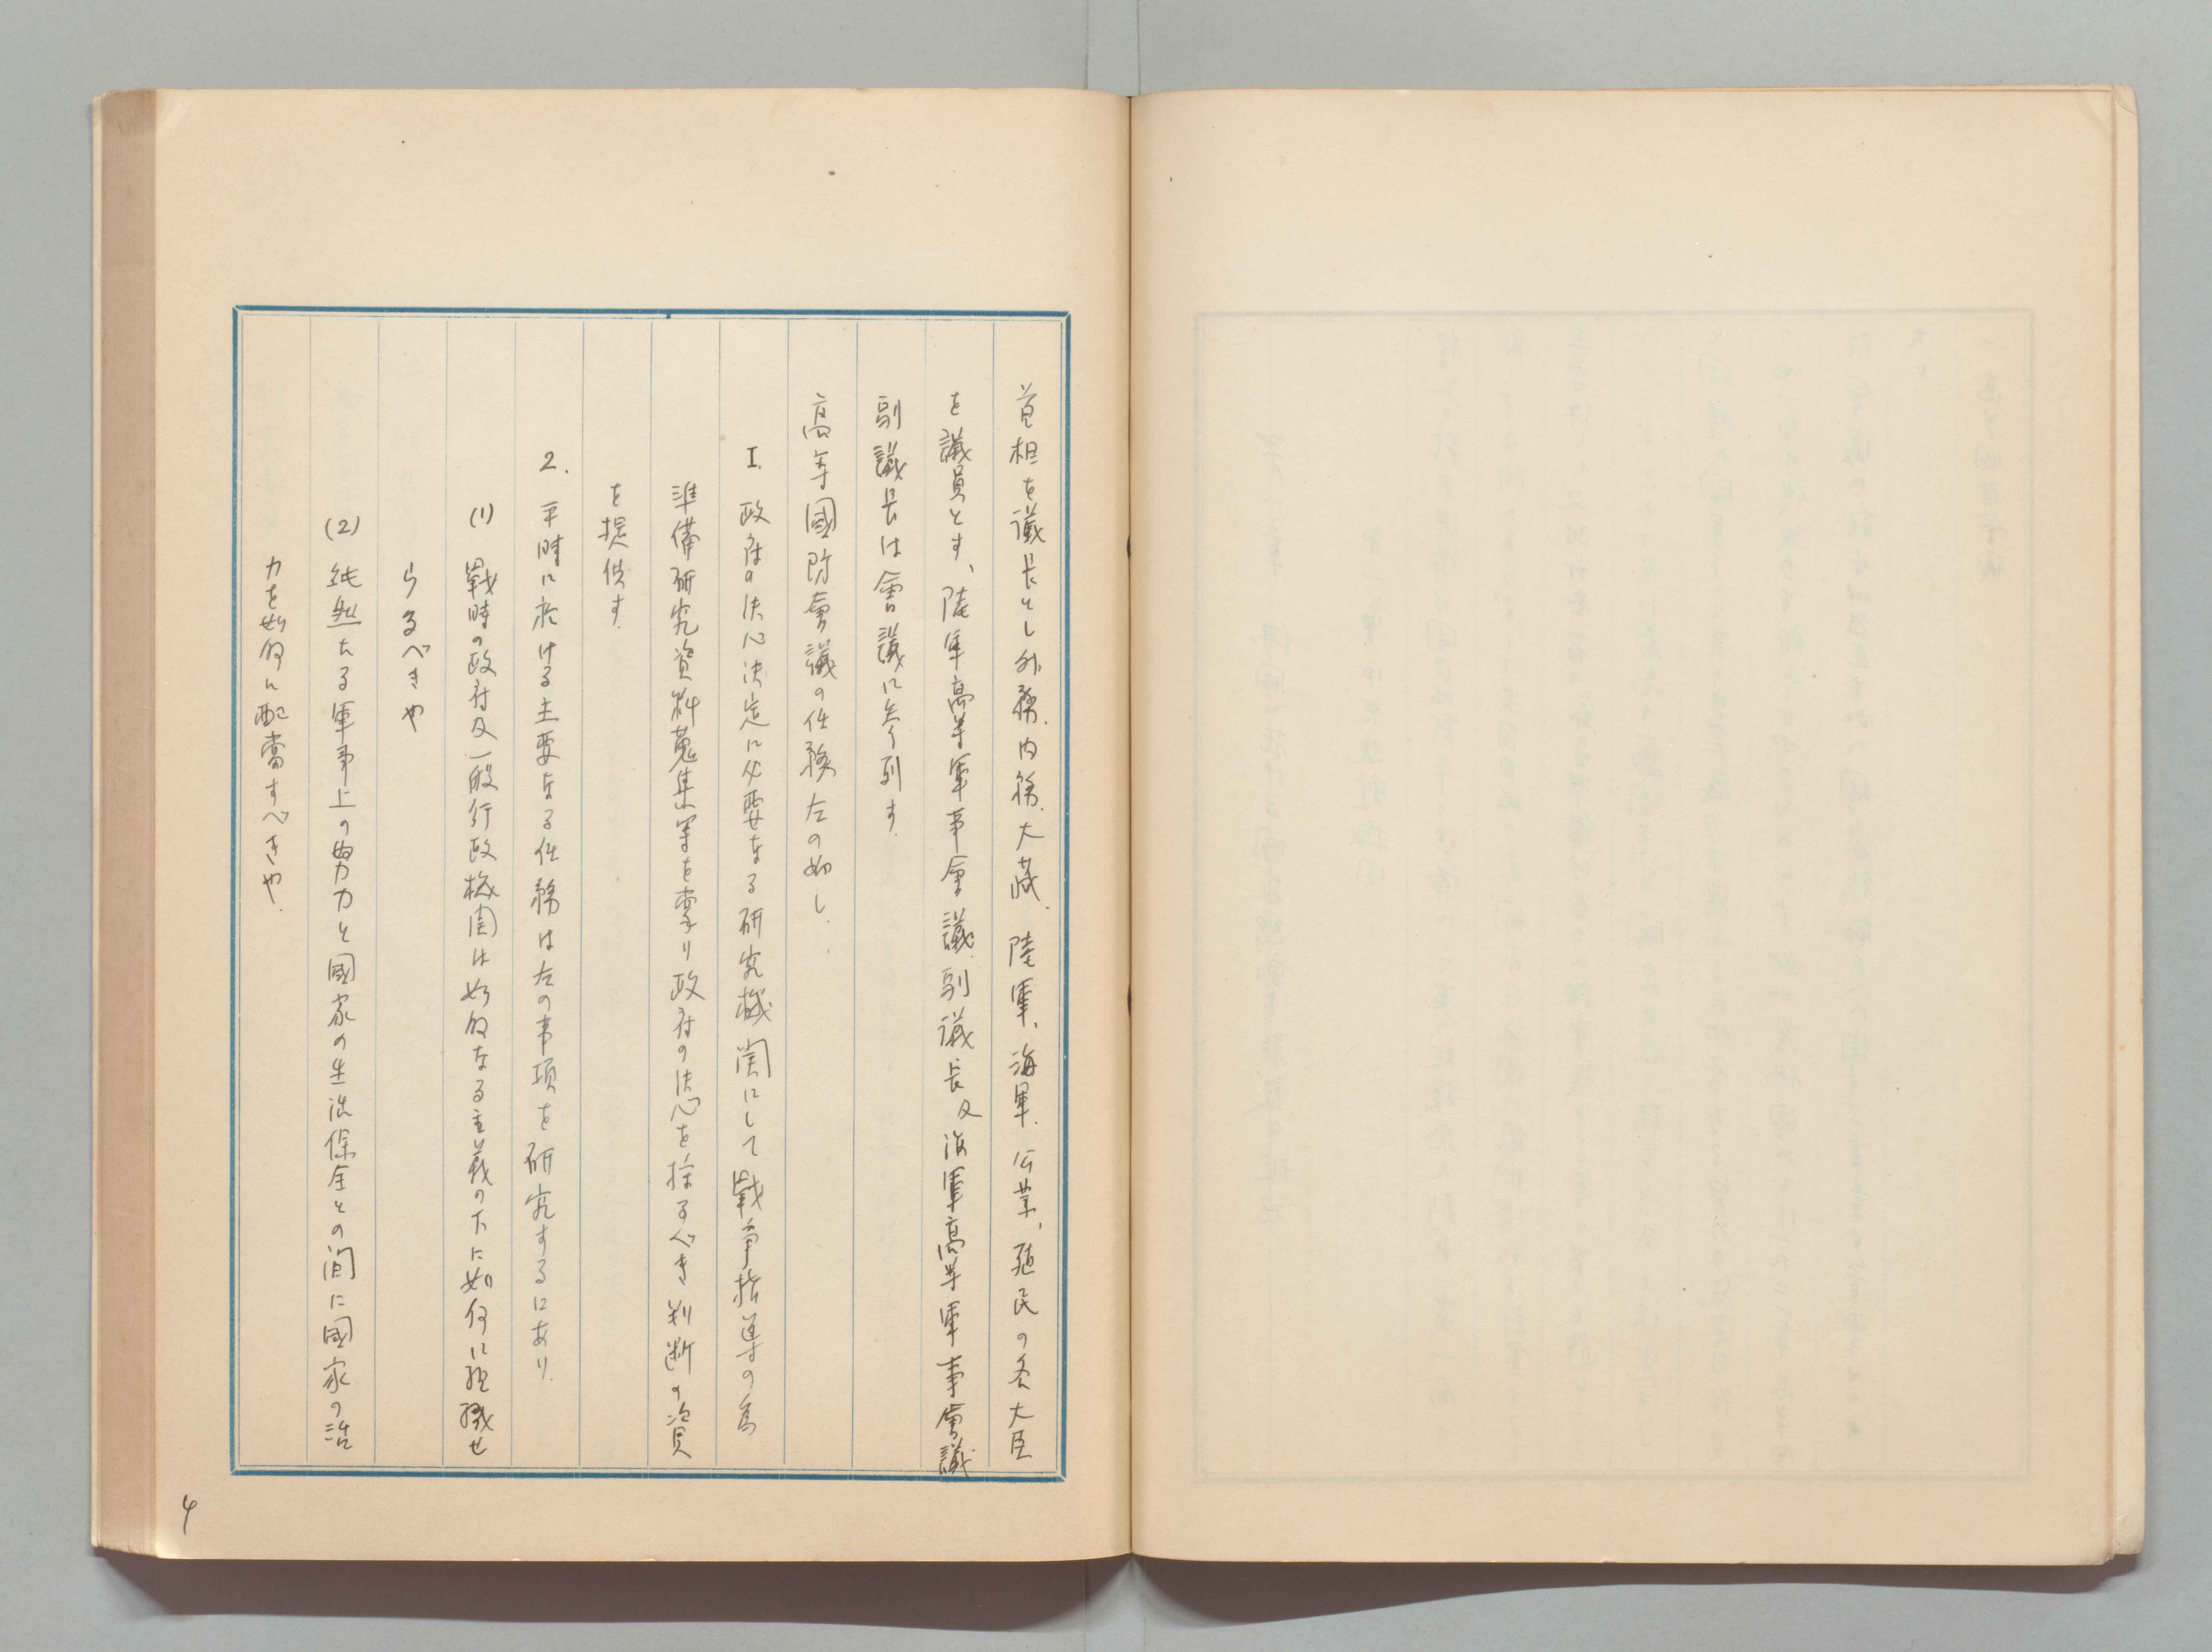 首相を議長とし外務、内務、大蔵、陸軍、海軍、公業、殖民の各大臣
を議員とす、陸軍高等軍事會議副議長及海軍高等軍事會議
副議長は會議に参列す、
高等國防會議の任務左の如し、
I. 政府の決心決定に必要なる研究機関にして戰争指導の為
準備研究資料蒐集等を掌り政府の決心を採るべき判断の資
を提供す、
2. 平時に於ける主要なる任務は左の事項を研究するにあり、
(1) 戰時の政府及一般行政機関は如何なる主義の下に如何に組織せ
らるべきや
(2) 純然たる軍事上の努力と國家の生活保全との間に國家の活
力を如何に配當すべきや、
4